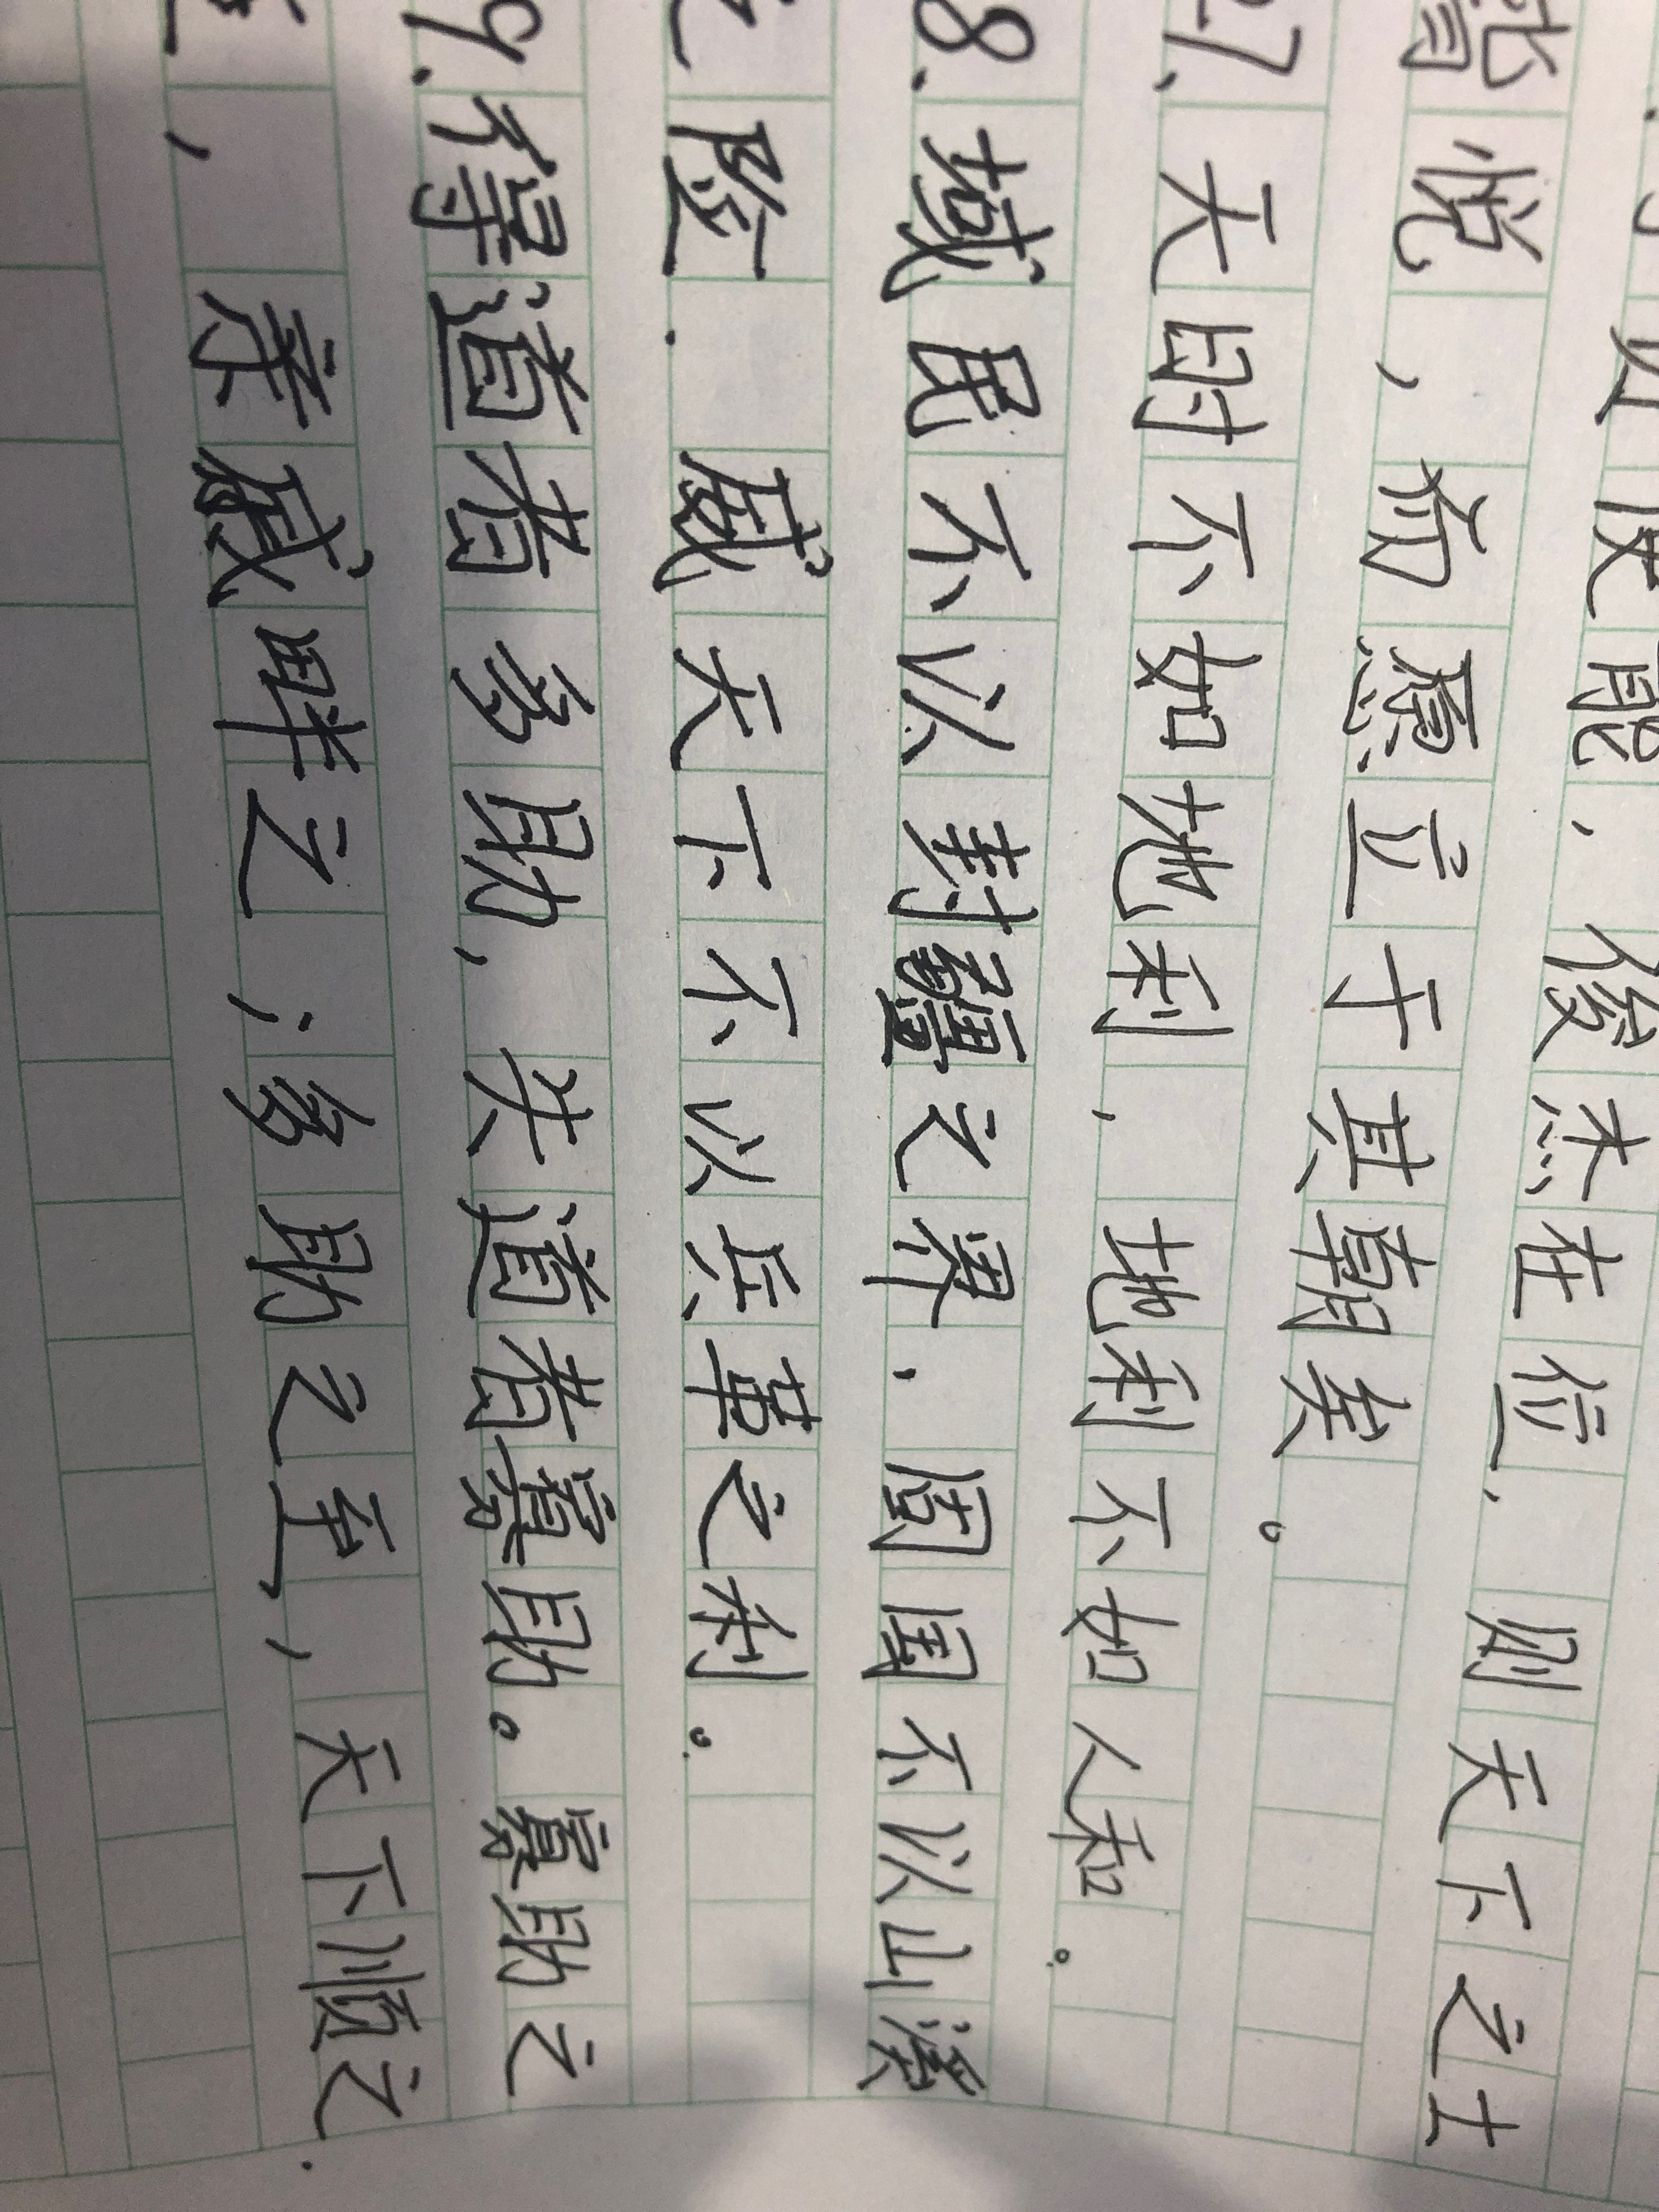 使能,俊杰在位,则天下之士
皆悦,而愿立于其朝矣。
27、天时不如地利,地利不如人和。
8、域民不以封疆之界,固国不以山溪
之险.威天下不以兵革之利。
9.得道者多助,失道者寡助。寡助之
至,亲戚畔之;多助之至,天下顺之.